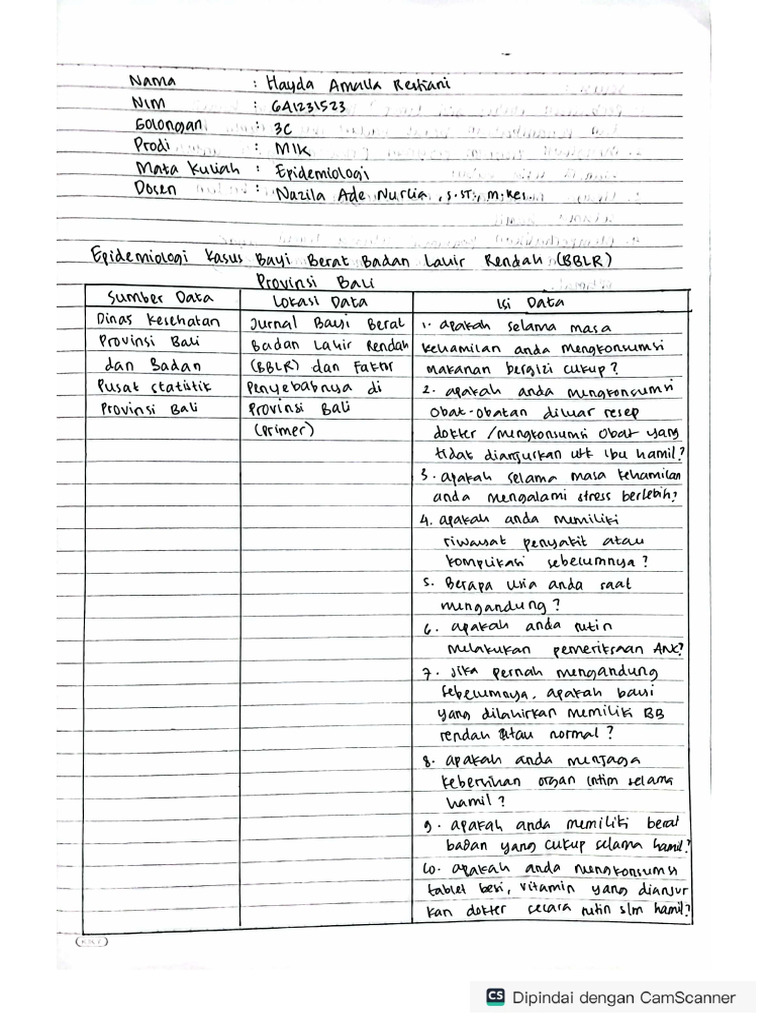 Nama : Hayda Amalia Restiani
NIM : GA1231523
Golongan : 3C
Prodi : MIK
Mata Kuliah : Epidemiologi
Dosen : Nazila Ade Nurlia, S.ST., M.Kes.
Epidemiologi Kasus Bayi Berat Badan Lahir Rendah (BBLR)
Provinsi Bali
Sumber Data
Dinas Kesehatan
Provinsi Bali
dan Badan
Pusat Statistik
Provinsi Bali
Lokasi Data
Jurnal Bayi Berat
Badan Lahir Rendah
(BBLR) dan Faktor
Penyebabnya di
Provinsi Bali
(Primer)
Isi Data
1. apakah selama masa
kehamilan anda mengkonsumsi
makanan bergizi cukup?
2. apakah anda mengkonsumsi
obat-obatan diluar resep
dokter / mengkonsumsi obat yang
tidak dianjurkan utk ibu hamil?
3. apakah selama masa kehamilan
anda mengalami stress berlebih?
4. apakah anda memiliki
riwayat penyakit atau
komplikasi sebelumnya?
5. Berapa usia anda saat
mengandung?
6. apakah anda rutin
melakukan pemeriksaan ANC?
7. Jika pernah mengandung
sebelumnya, apakah bayi
yang dilahirkan memiliki BB
rendah atau normal?
8. apakah anda menjaga
kebersihan organ intim selama
hamil?
9. apakah anda memiliki berat
badan yang cukup selama hamil?
10. apakah anda mengkonsumsi
tablet besi, vitamin yang dianjur
kan dokter secara rutin slm hamil?
CS Dipindai dengan CamScanner